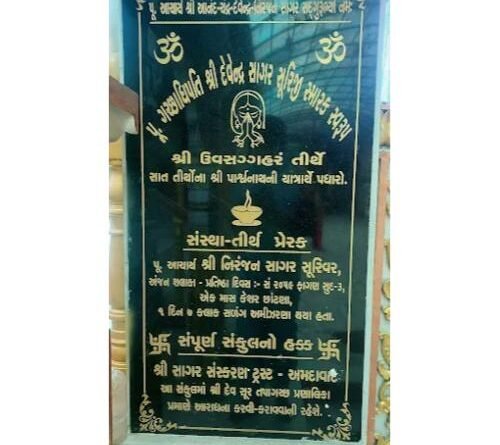 પૂ. આચાર્ય શ્રી આનંદ-ચંદ્ર-દેવેન્દ્ર-નિરંજન સાગર સદ્ગુરૂભ્યો નમઃ
ૐ ૐ
પૂ. ગચ્છાધિપતિ શ્રી દેવેન્દ્ર સાગર સૂરિજી સ્મારક સ્વરૂપ
શ્રી ઉવસગ્ગહરં તીર્થે
સાત તીર્થોના શ્રી પાર્શ્વનાથની યાત્રાર્થે પધારો.
સંસ્થા-તીર્થ પ્રેરક
પૂ. આચાર્ય શ્રી નિરંજન સાગર સૂરિવર,
અંજન શલાકા - પ્રતિષ્ઠા દિવસ :- સં ૨૦૫૯ ફાગણ સુદ-૩,
એક માસ કેશર છાંટણા,
૧ દિન ૭ કલાક સળંગ અમીઝરણા થયા હતા.
卐 સંપૂર્ણ સંકુલનો હક્ક 卐
શ્રી સાગર સંસ્કરણ ટ્રસ્ટ - અમદાવાદ
આ સંકુલમાં શ્રી દેવ સૂર તપાગચ્છ પ્રણાલિકા
પ્રમાણે આરાધના કરવી-કરાવવાની રહેશે.